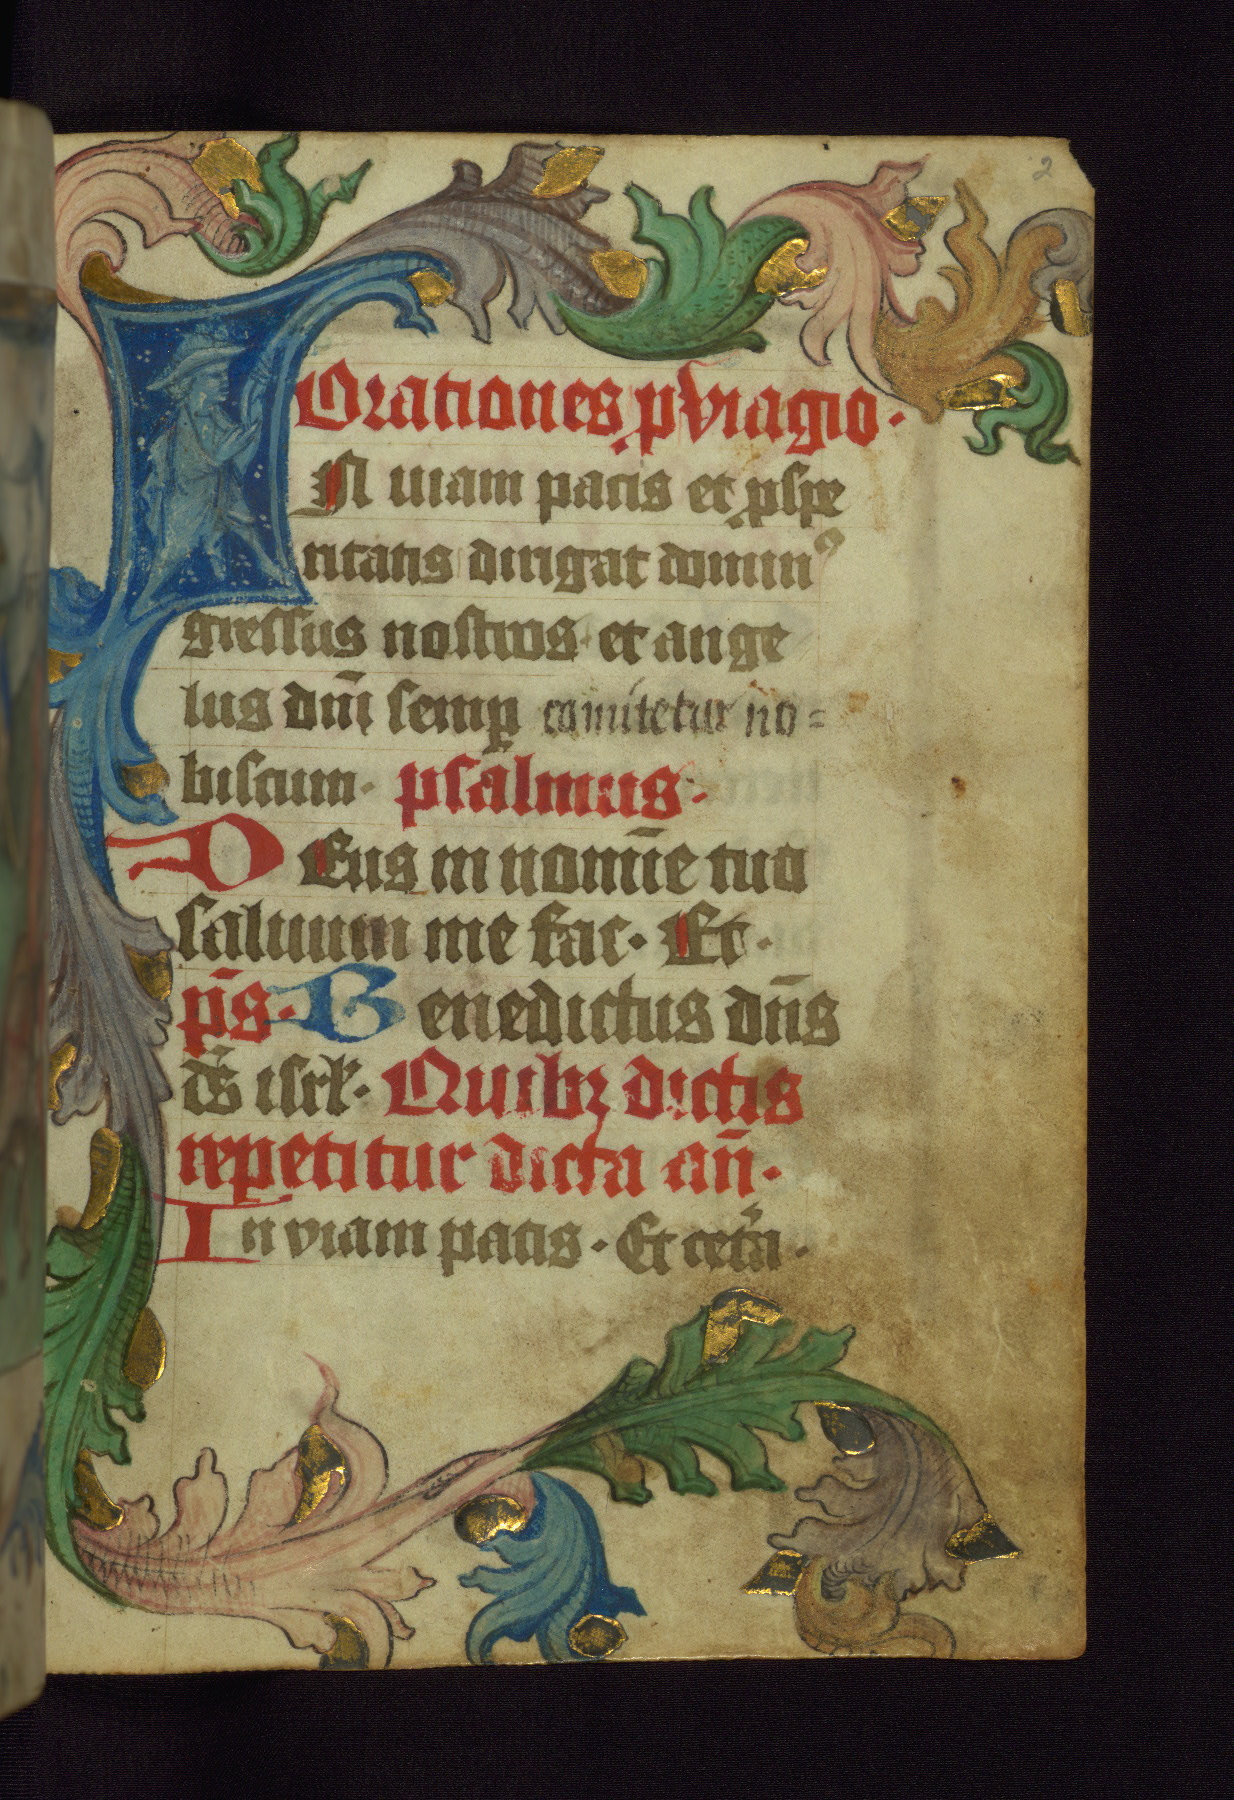 2
Orationes p viagio.
IN uiam pacis et pspe
ritatis dirigat domin⁹
gressus nostros et ange
lus dñi semp comitetur no=
biscum. psalmus.
DEus in nomīe tuo
saluum me fac. Et.
p̄s. Benedictus dñs
ds̄ isrl. Quibz dictis
repetitur dicta añ.
In viam pacis. Et cetã.